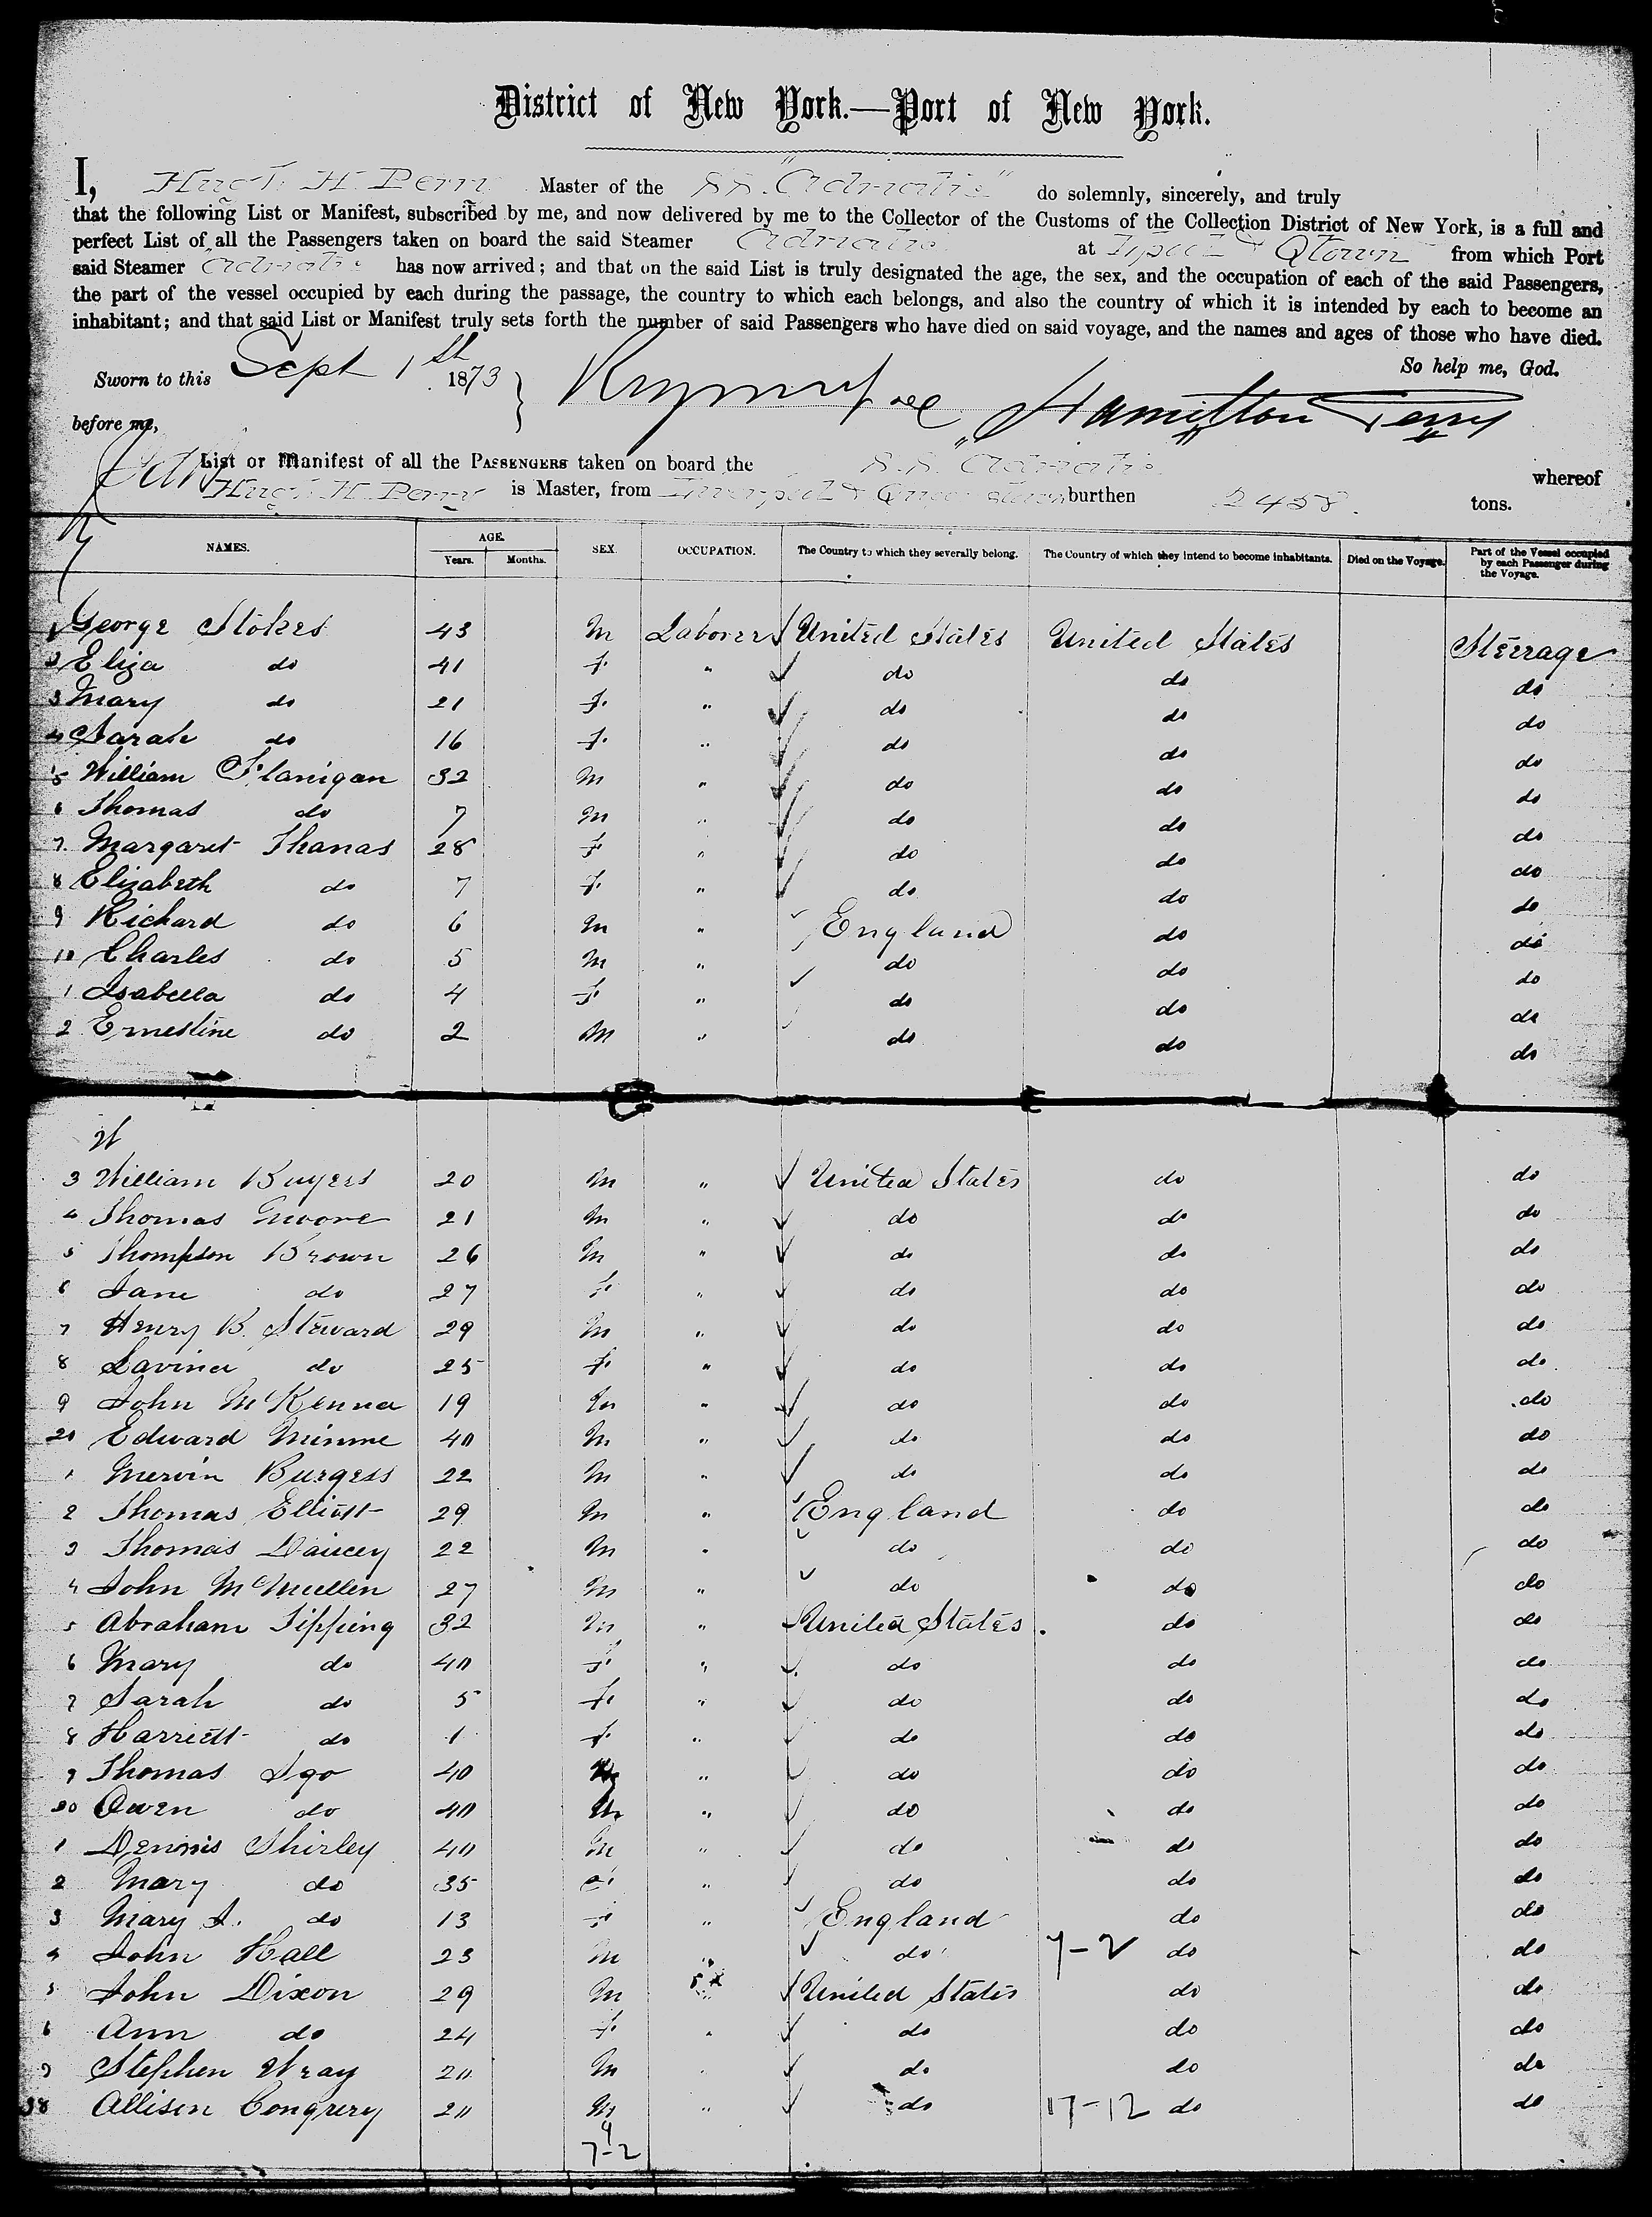 District of New York.—Port of New York.
I, H. Perry Master of the S.S. "Adriatic" do solemnly, sincerely, and truly
that the following List or Manifest, subscribed by me, and now delivered by me to the Collector of the Customs of the Collection District of New York, is a full and
perfect List of all the Passengers taken on board the said Steamer Adriatic at L'pool & Qtown from which Port
said Steamer Adriatic has now arrived; and that on the said List is truly designated the age, the sex, and the occupation of each of the said Passengers,
the part of the vessel occupied by each during the passage, the country to which each belongs, and also the country of which it is intended by each to become an
inhabitant; and that said List or Manifest truly sets forth the number of said Passengers who have died on said voyage, and the names and ages of those who have died.
So help me, God.
Sworn to this Sept 1st 1873
before me, Hamilton Perry
List or Manifest of all the PASSENGERS taken on board the S.S. Adriatic whereof
H. Perry is Master, from Liverpool & Queenstown burthen 2458. tons.
NAMES. AGE. Years. Months. SEX. OCCUPATION. The Country to which they severally belong. The Country of which they intend to become inhabitants. Died on the Voyage. Part of the Vessel occupied by each Passenger during the Voyage.
1 George Stokes 43 M Laborer United States United States Steerage
2 Eliza do 41 F. " do do do
3 Mary do 21 F. " do do do
4 Sarah do 16 F. " do do do
5 William Flanigan 32 M " do do do
6 Thomas do 7 M " do do do
7 Margaret Thanas 28 F " do do do
8 Elizabeth do 7 F. " do do do
9 Richard do 6 M " England do do
10 Charles do 5 M " do do do
1 Isabella do 4 F " do do do
2 Ernestine do 2 M " do do do
W
3 William Buyers 20 M " United States do do
4 Thomas Moore 21 M " do do do
5 Thompson Brown 26 M " do do do
6 Jane do 27 F " do do do
7 Henry B. Steward 29 M " do do do
8 Lavina do 25 F. " do do do
9 John McKenna 19 M " do do do
20 Edward Minme 40 M " do do do
1 Mervin Burgess 22 M " do do do
2 Thomas Elliott 29 M " England do do
3 Thomas Daucey 22 M " do do do
4 John McMullen 27 M " do do do
5 Abraham Tipping 32 M " United States do do
6 Mary do 40 F " do do do
7 Sarah do 5 F. " do do do
8 Harriett do 1 F " do do do
9 Thomas Igo 40 M " do do do
30 Owen do 40 M " do do do
1 Dennis Shirley 40 M " do do do
2 Mary do 35 " do do do
3 Mary J. do 13 F " England do do
4 John Hall 23 M " do 7-2 do do
5 John Dixon 29 M " United States do do
6 Ann do 24 F " do do do
7 Stephen Wray 20 M " do do do
38 Allison Congrery 20 M " do 17-12 do do
7-2